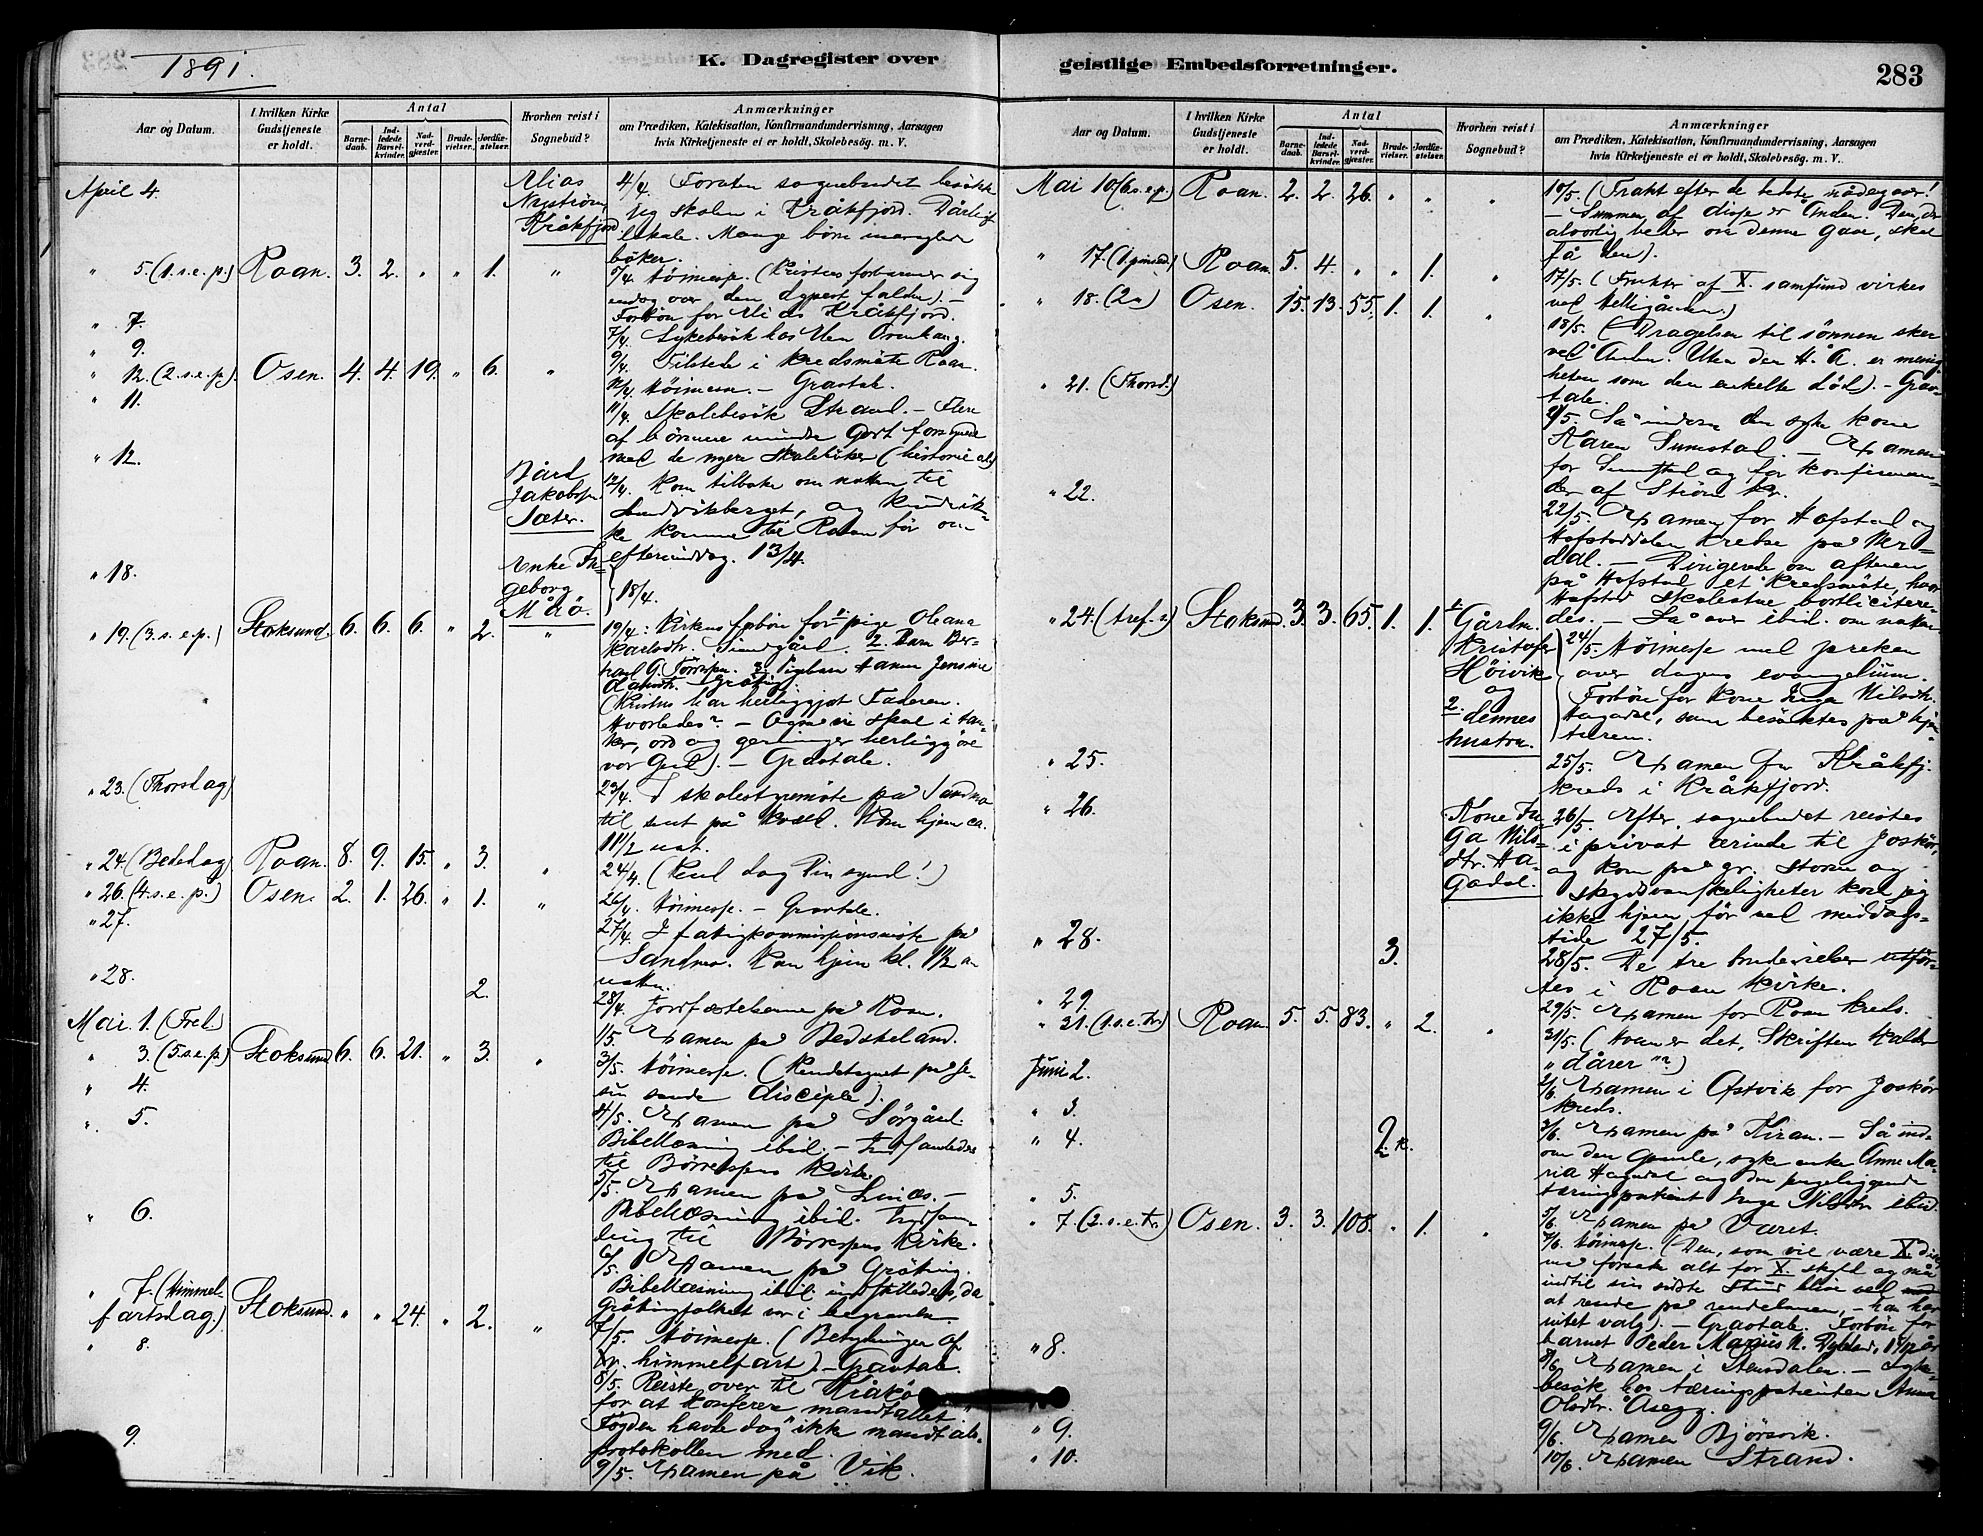 1891.
K. Dagregister over
Aar og Datum.
I hvilken Kirke Gudstjeneste er holdt.
Antal
Barnedaab.
Indledede Barselkvinder.
Nadverdgjæster.
Brudevielser.
Jordfæstelser.
Hvorhen reist i Sognebud?
Anmærkninger
om Prædiken, Katekisation, Konfirmandundervisning, Aarsagen
hvis Kirketjeneste ei er holdt, Skolebesøg. m. V.
April 4.
Elias
Kråkfjord.
4/4. Foruten sognebudet besökte
jeg skolen i Kråkfjord. Dårligt
lokale. Mange börn manglede
böker.
" 5. (1.s.e.p.) Roan. 3. 2. " " 1. "
5/4. Höimesse. (Kristus forbarmer sig
endog over den dypest faldne). –
Forbön for Elias Kråkfjord.
" 7.
7/4. Sykebesök hos
" 9.
9/4. Tilstede i kredsmöte Roan.
" 12. (2.s.e.p.). Osen. 4. 4. 19. " 6. "
12/4. Höimesse. – Gravtale.
" 11.
11/4. Skolebesök Strand. – Flere
af börnene mindre godt forsynede
med de nyere skoleböker (historie
" 12.
Bård
Jakobsen
Sæter.
12/4. Kom tilbake om natten til
og kunde ik-
ke komme til Roan för om
eftermiddag. 13/4.
" 18.
Enke In-
geborg
Målö.
18/4.
" 19. (3.s.e.p.) Stoksund. 6. 6. 6. " 2. "
19/4: Kirkens forbön for pige Oleana
Karlsdtr. 2. Barn Ber-
3. Pigebarn Hanna Jensine
Gråting.
(Kristus har herliggjort Faderen.
Hvorledes? – Også vi skal i tan-
ker, ord og gerninger herliggjöre
vor Gud). – Gravtale.
" 23. (Thorsdag)
23/4. I skolestyremöte på Sandnes
til sent på kveld. Kom hjem ca.
11 1/2 nat.
" 24. (Bededag) Roan. 8. 9. 15. " 3. "
24/4. (Kend dog Din synd!)
" 26. (4.s.e.p.) Osen. 2. 1. 26. " 1. "
26/4. Höimesse. – Gravtale.
" 27.
27/4. I fatigkommissionsmöte på
Sandnes. Kom hjem kl.
natten.
" 28. 2.
28/4. Jordfæstelserne på Roan.
Mai. 1. (Fred.
1/5. Examen på Bedskeland.
" 3. (5.s.e.p) Stoksund. 6. 6. 21. " 3. "
3/5. Höimesse. (Kendetegnet på Je-
su sande disciple).
" 4.
4/5. Examen på Sörgård.
Bibellæsning ibid. – Indsamledes
til Börresens kirke.
" 5.
5/5. Examen på Linæs. –
Bibellæsning ibid. Indsam-
ling til Börresens kirke.
" 6.
6/5. Examen på Gråting.
Bibellæsning ibid. indstilledes, da
Gråtingfolket var i begravelse.
" 7. (Himmel-
fartsdag.) Stoksund. " " 24. " 2. "
7/5. Höimesse. (Betydningen af
himmelfart). – Gravtale.
" 8.
8/5. Reiste over til Kråkö
for at konferere mandtallet.
Fogden havde dog ikke mandtals-
protokollen med.
9.
9/5. Examen på Vik.
geistlige Embedsforretninger.
283
Aar og Datum.
I hvilken Kirke Gudstjeneste er holdt.
Antal
Barnedaab.
Indledede Barselkvinder.
Nadverdgjæster.
Brudevielser.
Jordfæstelser.
Hvorhen reist i Sognebud?
Anmærkninger
om Prædiken, Katekisation, Konfirmandundervisning, Aarsagen
hvis Kirketjeneste ei er holdt, Skolebesøg m. V.
Mai 10 (6.s.e.p.) Roan. 2. 2. 26. " " "
10/5. (Trakt efter de bedste nådegaver!
– Summen af disse er Ånden. Den, der
alvorlig beder om denne gave, skal
få den).
" 17. (1. pinsed.) Roan. 5. 4. " " 1. "
17/5. (Frukten af X. samfund virkes
ved Helligånden.)
" 18. (2. ") Osen. 15. 13. 55. 1. 1. "
18/5. (Dragelsen til sönnen sker
ved Ånden. Uten den H. Å. er menig-
heten som den enkelte död). – Grav-
tale.
" 21. (Thorsd.)
21/5. Så indom den syke kone
Karen Sumstad. – Examen
for Sumstad og for konfirman-
der af Ström kr.
" 22.
22/5. Examen for Hofstad og
Hofstaddalens kredse på Ner-
dal. – Dirigerede om aftenen
på Hofstad et kredsmöte, hvor
Hofstad skolestue bortlicitere-
des. – Lå over ibid. om natten.
" 24. (tref. s.) Stoksund. 3. 3. 65. 1. 1.
1. Gårdm.
Kristofer
Höivik
og
2. dennes
hustru.
24/5. Höimesse med preken
over dagens evangelium.
Forbön for kone Inga Nilsdtr.
Hagadal, som besöktes på hjem-
turen.
" 25.
25/5. Examen for Kråkfj.
kreds i Kråkfjord.
" 26.
Kone In-
ga Nils-
dtr. Ha-
gadal.
26/5. Efter sognebudet reistes
i privat ærinde til Joskör,
og kom på gr. storm og
skydsvanskeligheter kom jeg
ikke hjem för ved middags-
tide 27/5.
" 28. 3.
28/5. De tre brudevielser utför-
tes i Roan kirke.
" 29.
29/5. Examen for Roan kreds.
" 31. (1.s.e.tr.) Roan. 5. 5. 83. " 2. "
31/5. (Hvem er det, Skriften kalder
"dårer"?)
Juni 2.
2/6. Examen i Östvik for Joskör
kreds.
" 3.
3/6. Examen på Kiran. – Så ind-
om den gamle, syke enke Anne Ma-
ria Hagadal og den sengeliggende
tæringspatient Inga Nilsdtr. ibid.
" 4. 2
" 5.
5/6. Examen på Våret.
" 7. (2.s.e.tr.) Osen. 3. 3. 108. " 1. "
7/6. Höimesse. (Den, som vil være X. di
må forsake alt for X. skyld og må
indtil sin sidste stund blive ved
at rende på rendebanen, – han har
intet valg). – Gravtale. Forbön for
barnet Peder Marius
" 8.
8/6. Examen i Stensdalen. – Syke-
besök hos tæringspatienten Anna
Olsdtr. Åsegg.
" 9.
9/6. Examen Björsvik.
" 10.
10/6. Examen Strand.